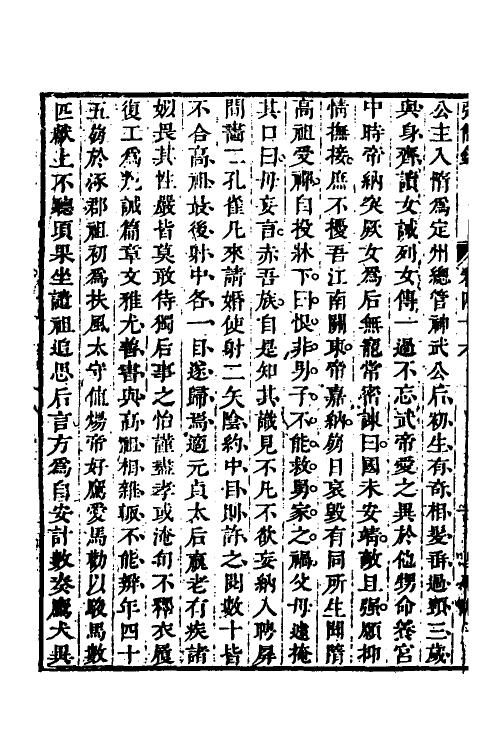 公主入隋爲定州總管神武公后初生有奇相髮垂過頸三歲
與身齊讀女誡列女傳一過不忘武帝愛之異於他甥命養宮
中時帝納突厥女爲后無寵常密諫曰國未安靖敵且强願抑
情撫接庶不擾吾江南關東帝嘉納崩日哀毀有同所生聞隋
高祖受禪自投牀下曰恨非男子不能救舅家之禍父母遽掩
其口曰毋妄言赤吾族自是知其識見不凡不欲妄納人聘屏
間畵二孔雀凡來請婚使射二矢陰約中目則許之閱數十皆
不合高祖最後射中各一目遂歸焉適元貞太后羸老有疾諸
姒畏其性嚴皆莫敢侍獨后事之怡謹盡孝或淹旬不釋衣履
復工爲䂓誡篇章文雅尤善書與高祖相雜厠不能辨年四十
五崩於涿郡祖初爲扶風太守值煬帝好鷹愛馬勸以駿馬數
匹獻上不聽項果坐譴祖追思后言方爲自安計數奏鷹犬異